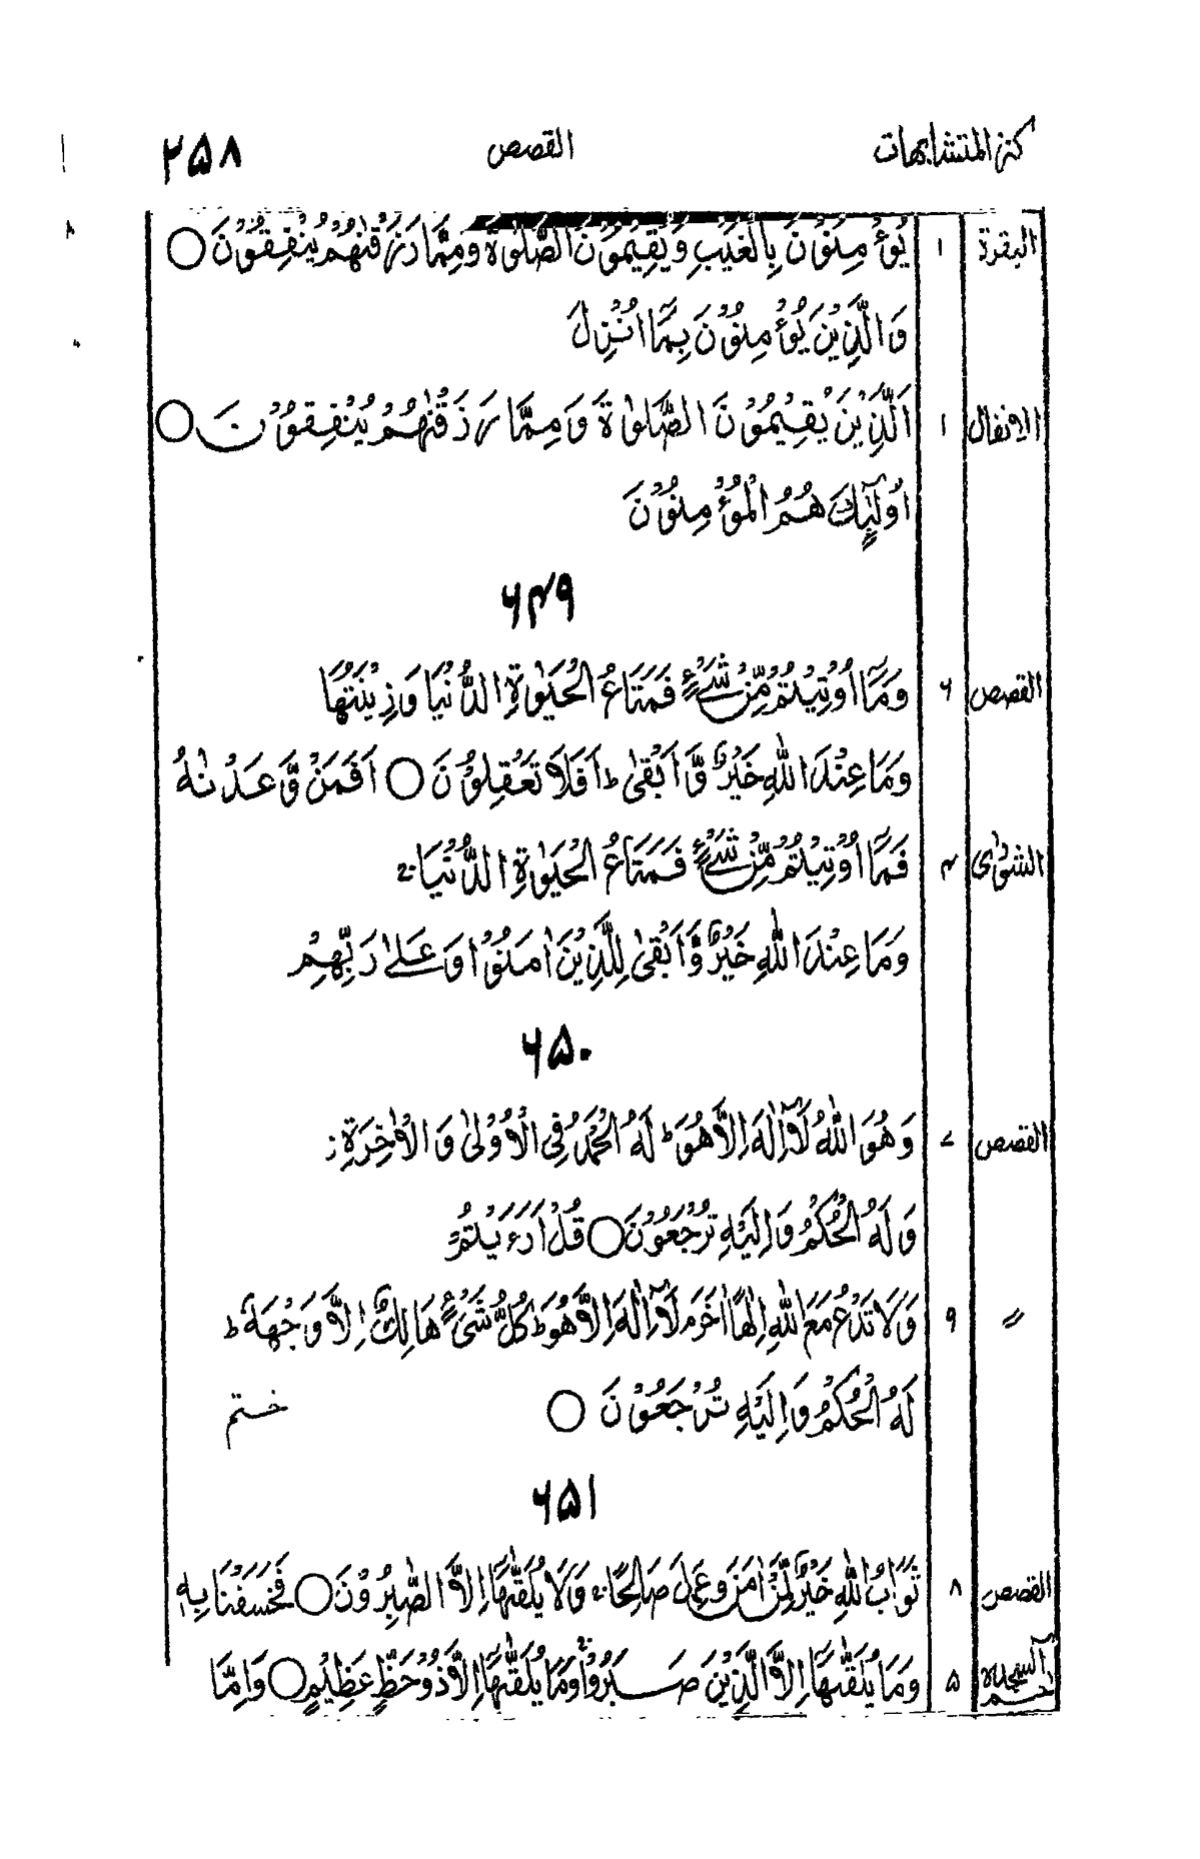 كنز المتشابهات القصص ۲۵۸
البقرة ۱ يُؤْمِنُوْنَ بِالْغَيْبِ وَيُقِيْمُوْنَ الصَّلٰوةَ وَمِمَّا رَزَقْنٰهُمْ يُنْفِقُوْنَ ○
وَالَّذِيْنَ يُؤْمِنُوْنَ بِمَا اُنْزِلَ
الانفال ۱ اَلَّذِيْنَ يُقِيْمُوْنَ الصَّلٰوةَ وَمِمَّا رَزَقْنٰهُمْ يُنْفِقُوْنَ ○
اُولٰٓئِكَ هُمُ الْمُؤْمِنُوْنَ
۶۴۹
القصص ۶ وَمَآ اُوْتِيْتُمْ مِّنْ شَيْءٍ فَمَتَاعُ الْحَيٰوةِ الدُّنْيَا وَزِيْنَتُهَا
وَمَا عِنْدَ اللّٰهِ خَيْرٌ وَّاَبْقٰى ؕ اَفَلَا تَعْقِلُوْنَ ○ اَفَمَنْ وَّعَدْنٰهُ
الشورٰى ۴ فَمَآ اُوْتِيْتُمْ مِّنْ شَيْءٍ فَمَتَاعُ الْحَيٰوةِ الدُّنْيَا ۚ
وَمَا عِنْدَ اللّٰهِ خَيْرٌ وَّاَبْقٰى لِلَّذِيْنَ اٰمَنُوْا وَعَلٰى رَبِّهِمْ
۶۵۰
القصص ۷ وَهُوَ اللّٰهُ لَآ اِلٰهَ اِلَّا هُوَ ؕ لَهُ الْحَمْدُ فِي الْاُوْلٰى وَالْاٰخِرَةِ ز
وَلَهُ الْحُكْمُ وَاِلَيْهِ تُرْجَعُوْنَ ○ قُلْ اَرَءَيْتُمْ
〃 ۹ وَلَا تَدْعُ مَعَ اللّٰهِ اِلٰهًا اٰخَرَ م لَآ اِلٰهَ اِلَّا هُوَ ؕ كُلُّ شَيْءٍ هَالِكٌ اِلَّا وَجْهَهٗ ؕ
لَهُ الْحُكْمُ وَاِلَيْهِ تُرْجَعُوْنَ ○ ختم
۶۵۱
القصص ۸ ثَوَابُ اللّٰهِ خَيْرٌ لِّمَنْ اٰمَنَ وَعَمِلَ صَالِحًا ۚ وَلَا يُلَقّٰىهَآ اِلَّا الصّٰبِرُوْنَ ○ فَخَسَفْنَا بِهٖ
حٰم السجدة ۵ وَمَا يُلَقّٰىهَآ اِلَّا الَّذِيْنَ صَبَرُوْا ۚ وَمَا يُلَقّٰىهَآ اِلَّا ذُوْ حَظٍّ عَظِيْمٍ ○ وَاِمَّا